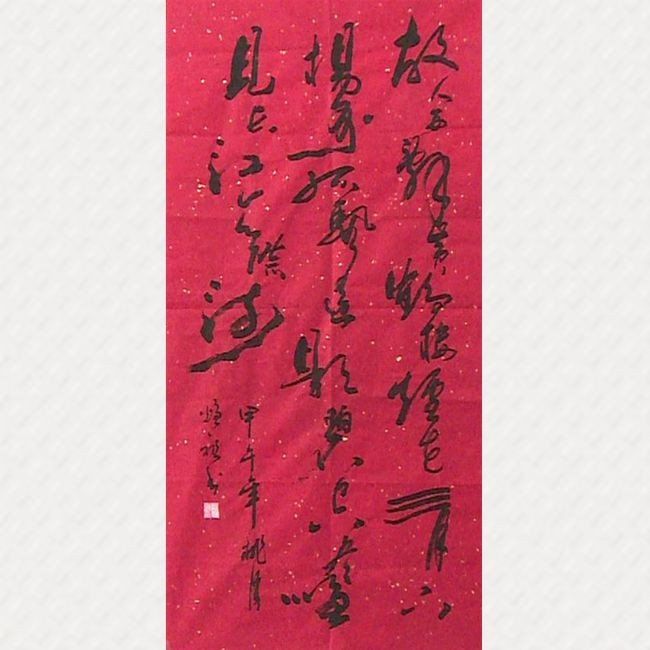 故人西辭黃鶴樓煙花三月下
揚州孤帆遠影碧空盡
見長江天際流
甲午年桃月
书